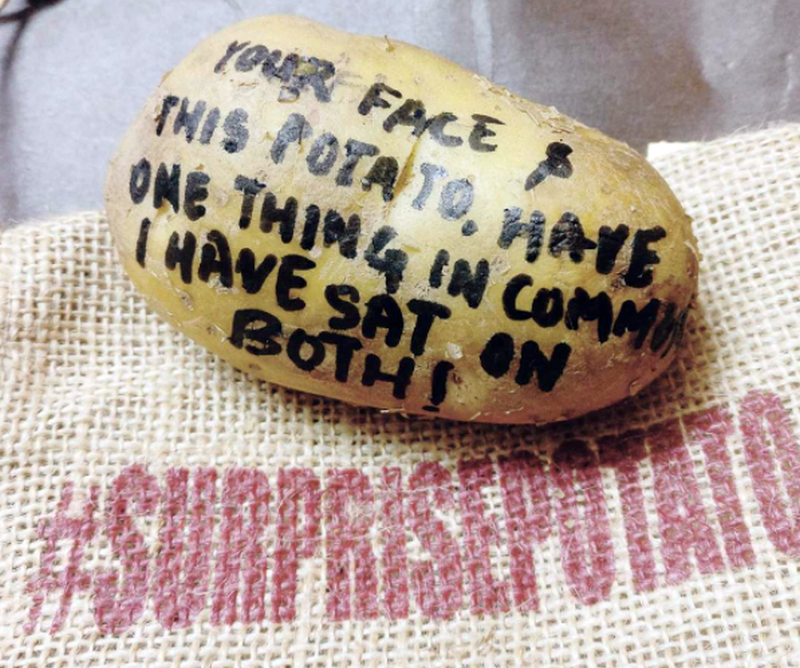 YOUR FACE &
THIS POTATO. HAVE
ONE THING IN COMMON
I HAVE SAT ON
BOTH!
#SURPRISEPOTATO